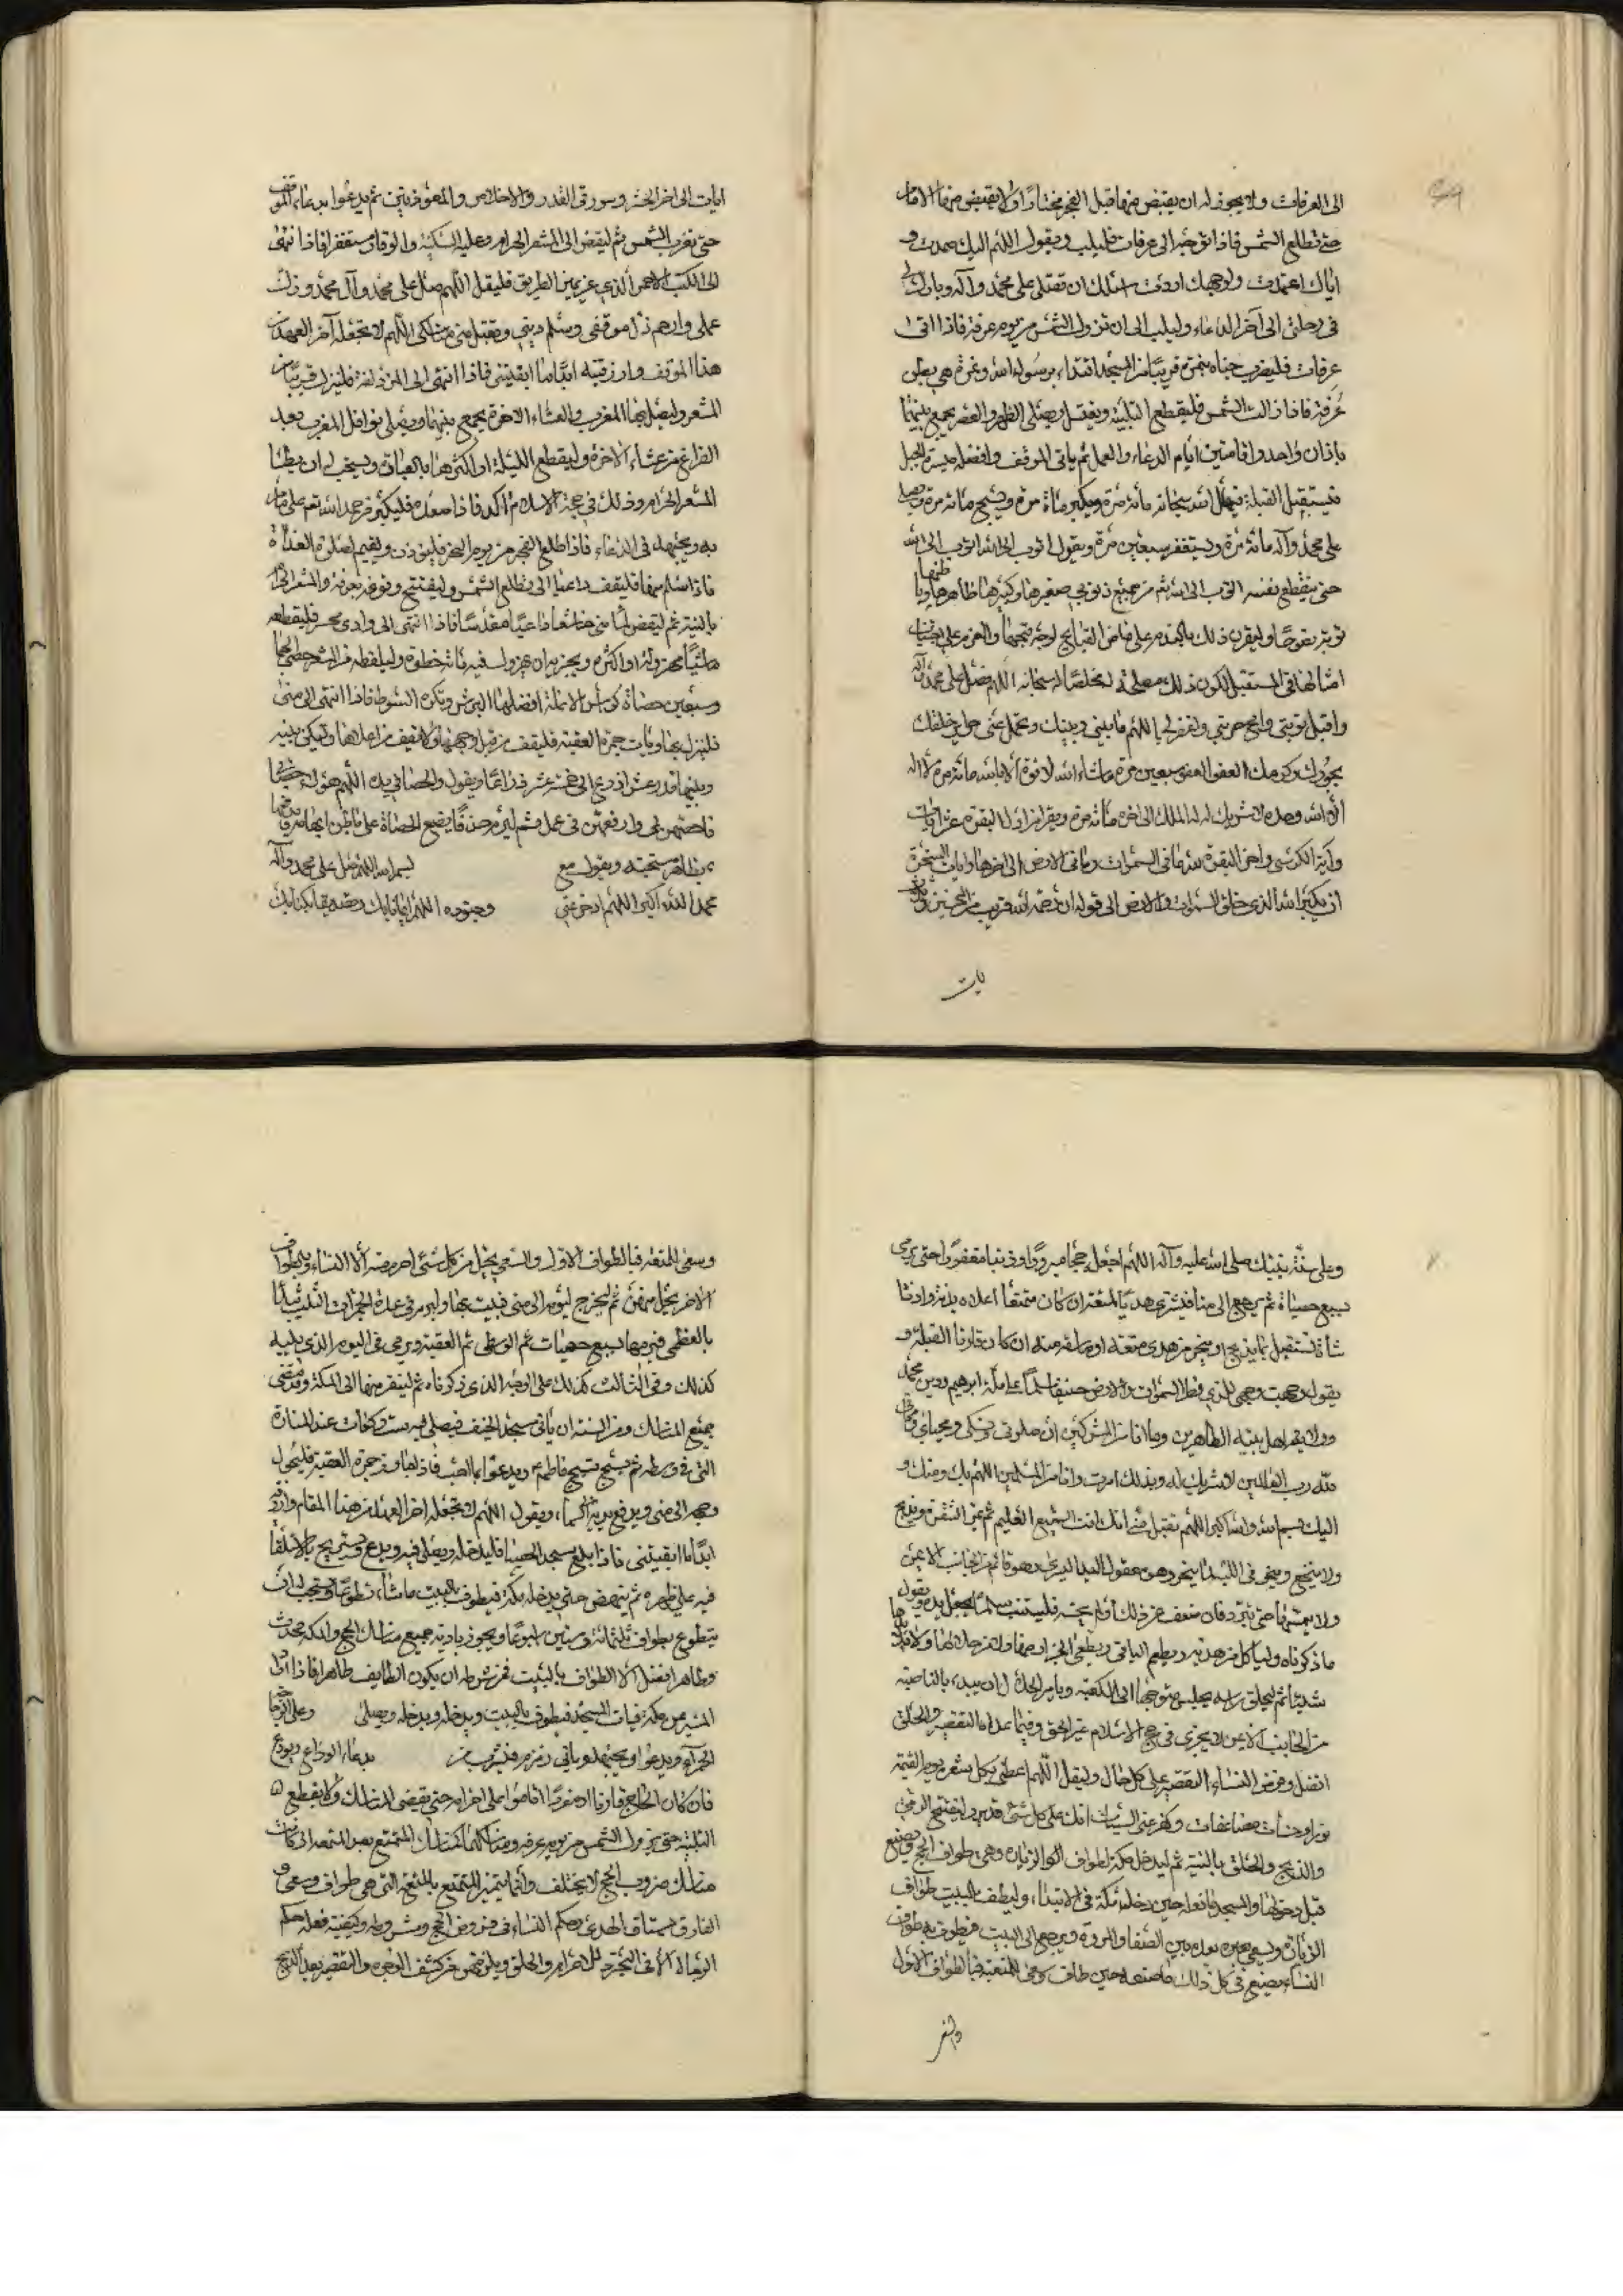 الى العرفات ولا يجوز له ان يفيض منها قبل الفجر مختارًا ولا يفيض منها الامام
حتى تطلع الشمس فاذا توجه الى عرفات فليلب ويقول اللهم اليك صمدت و
اياك اعتمدت ولوجهك اردت اسئلك ان تصلى على محمد وآله وبارك لى
فى رحلتى الى آخر الدعاء وليلب الى ان تزول الشمس من يوم عرفة فاذا اتى
عرفات فليضرب خباه بنمرة قريبًا من المسجد اقتداء برسول الله ونمرة هى بطن
عرفة فاذا زالت الشمس فليقطع التلبية ويغتسل ويصلى الظهر والعصر يجمع بينهما
باذان واحد واقامتين الدعاء والعمل ثم ياتى الموقف وافضله ميسرة الجبل
فيستقبل القبلة فيهلل الله سبحانه مائة مرة ويكبر مائة مرة ويسبح مائة مرة ويصلى
على محمد وآله مائة مرة ويستغفر سبعين مرة ويقول اتوب الى الله اتوب الى الله
حتى ينقطع نفسه اتوب الى الله من جميع ذنوبى صغيرها وكبيرها ظاهرها وباطنها
توبة نصوحًا وليقرن ذلك بالندم على ماض القبايح لوجه قبحها والعزم على اجتناب
امثالها فى المستقبل لتكون ذلك مصلحة له مخلصًا له سبحانه اللهم صل على محمد وآله
واقبل توبتى وامح حوبتى واغفر لى اللهم ما بينى وبينك وتحمل عنى حوايج خلقك
بجودك وكرمك العفو العفو سبعين مرة ما شاء الله لا قوة الا بالله مائة مرة لا اله
الا الله وحده لا شريك له له الملك الى آخره مائة مرة ويقرا من اول البقرة عشر ايات
وآية الكرسى واخر البقرة لله ما فى السموات وما فى الارض الى اخرها وايات السخرة
ان ربكم الله الذى خلق السموات والارض الى قوله ان رحمة الله قريب من المحسنين
يات
ايات الى اخر الحشر وسورتى القدر والاخلاص والمعوذتين ثم يدعوا بدعاء الموقف
حتى تغرب الشمس ثم ليفض الى المشعر الحرام وعليه السكينة والوقار مستغفرا فاذا انتهى
الى الكثيب الاحمر الذى عن يمين الطريق فليقل اللهم صل على محمد وآل محمد وزك
عملى وارحم ذل موقفى وسلم دينى وتقبل منى مناسكى اللهم لا تجعله آخر العهد من
هذا الموقف وارزقنيه ابدًا ما ابقيتنى فاذا انتهى الى المزدلفة فلينزل قريبًا من
المشعر وليصل بها المغرب والعشاء الاخرة يجمع بينهما ويصلى نوافل المغرب بعد
الفراغ من عشاء الاخرة وليقطع الليلة او اكثرها بالعبادة ويستحب له ان يطأ
المشعر الحرام وذلك فى حجة الاسلام آكد فاذا صعده فليكثر من حمد الله تعم على ما
به ويجتهد فى الدعاء فاذا طلع الفجر من يوم النحر فليؤذن ويقيم لصلوة الغداة
فاذا سلم منها فليقف داعيا الى ان تطلع الشمس وليفتتح وقوفه بعرفة والمشعر الحرام
بالنية ثم ليفض الى منى خاشعًا داعيًا مقدسًا فاذا انتهى الى وادى محسر فليقطعه
ماشيًا مهرولا او اكثره ويجزيه ان يهرول فيه مائة خطوة وليلقط من المشعر حصى الجمار
وسبعين حصاة كرأس الانملة افضلها البرش وتكره السود فاذا انتهى الى منى
فلينزل بها ويأت جمرة العقبة فليقف من قبل وجهها ولا تقف من اعلاها وليكن بينه
وبينها قدر عشر اذرع الى خمسة عشر ذراعًا ويقول والحصا فى يده اللهم هؤلاء حصياتى
فاحصهن لى وارفعهن فى عملى ثم ليرم حذفًا يضع الحصاة على باطن ابهامه ويدفعها
بظاهر سبحته ويقول مع بسم الله اللهم صل على محمد وآله
محمد الله اكبر اللهم ادحر عنى وجنوده اللهم ايمانا بك وتصديقا بكتابك
وعلى سنة نبيك صلى الله عليه وآله اللهم اجعله حجا مبرورًا وذنبا مغفورًا حتى يرمى
بسبع حصياة ثم يرجع الى منا فيشترى هديًا لمتعته ان كان متمتعًا اعلاه بدنة وادناه
شاة فتستقبل بما يذبح او ينحر من هدى متعته او ما سقه منه ان كان قارنا القبلة و
يقول وجهت وجهى للذى فطر السموات والارض حنيفا مسلمًا على ملة ابراهيم ودين محمد
وولاية اهل بيته الطاهرين وما انا من المشركين ان صلوتى ونسكى ومحياى ومماتى
لله رب العالمين لا شريك له وبذلك امرت وانا من المسلمين اللهم بك ومنك و
اليك بسم الله والله اكبر اللهم تقبل منى انك انت السميع العليم ثم يمر الشفرة ويذبح
ولا ينخع وينحر فى اللبة ما ينحر وهو معقول اليد اليسرى وهو قائم من الجانب الايمن
ولا يسلخها حتى تبرد فان ضعف عن ذلك او لم يحسنه فليستنب مسلمًا يجعل يده ويقول
ما ذكرناه ولياكل من هديه ويطعم الباقى ولا يعطى الجزار منها ولا من جلالها ولا قلائدها
شيئا ثم ليحلق راسه يجلس متوجها الى الكعبة ويامر الحلاق ان يبدء بالناصية
من الجانب الايمن لا يجزى فى حج الاسلام غير الحلق وفيما عداه التقصير والحلق
افضل وفرض النساء التقصير على كل حال وليقل اللهم اعطنى بكل شعرة يوم القيمة
نورا وحسنات مضاعفات وكفر عنى السيئات انك على كل شئ قدير وليفتتح الرمى
والذبح والحلق بالنية ثم ليدخل مكة لطواف الزيارة وهى طواف الحج ويصنع
قبل دخولها والمسجد ما فعله حين دخله مكة فى الابتداء وليطف بالبيت طواف
الزيارة ويسعى بعده بين الصفا والمروة ويرجع الى البيت فيطوف به طواف
النساء يصنع فى كل ذلك ما صنعه حين طاف وسعى للمتعة فبالطواف الاول
وسعى للمتعة فبالطواف الاول والسعى يحل من كل شئ احرم منه الا النساء وبطواف
الاخر يحل منهن ثم ليخرج ليومه الى منى فيبيت بها وليرم فى غد الجمرات الثلث يبدأ
بالعظمى فيرميها بسبع حصيات ثم الوسطى ثم العقبة ويرمى فى اليوم الذى يليه
كذلك وفى الثالث كذلك على الوجه الذى ذكرناه ثم لينفر منها الى مكة وقد قضى
جميع المناسك ومن السنة ان يأتى مسجد الخيف فيصلى فيه ست ركعات عند المنارة
التى فى وسطه ثم يسبح تسبيح فاطمة ويدعوا بما احب فاذا جاوز جمرة العقبة فليحول
وجهه الى منى ويرفع يديه الى السماء ويقول اللهم لا تجعله اخر العهد من هذا المقام وارزقنيه
ابدًا ما ابقيتنى فاذا بلغ مسجد الحصباء فليدخله ويصلى فيه ويدع ويستريح بالاستلقاء
فيه على ظهره ثم ينهض حتى يدخل مكة فيطوف بالبيت ما شاء تطوعًا ويستحب له ان
يتطوع بطواف ثلثمائة وستين اسبوعًا ويجوز تادية جميع مناسك الحج والعمرة محدث
وطاهرا افضل الا الطواف بالبيت فمن شرطه ان يكون الطايف طاهرا فاذا اراد
المسير من مكة فيات المسجد فيطوف بالبيت ويدخله ويصلى وعلى الرخامة
الحمراء ويدعوا ويجتهد وياتى زمزم فيشرب من بدعاء الوداع ويودع
فان كان الحاج قارنا او مفردًا اقاموا على احرامه حتى يقضى المناسك ولا يقطع
التلبية حتى تزول الشمس من يوم عرفة ومناسكهما كمناسك المتمتع بعد المتعة اذ كانت
مناسك ضروب الحج لا يختلف وانما يتميز المتمتع بالمتعة التى هى طواف وسعى و
القارن بسياق الهدى وحكم النساء فى فروض الحج وشروطه وكيفية فعله حكم
الرجال الا فى التجرد للاحرام والحلق ويلزمهن من كشف الوجوه والتقصير بعد الذبح
والاخر